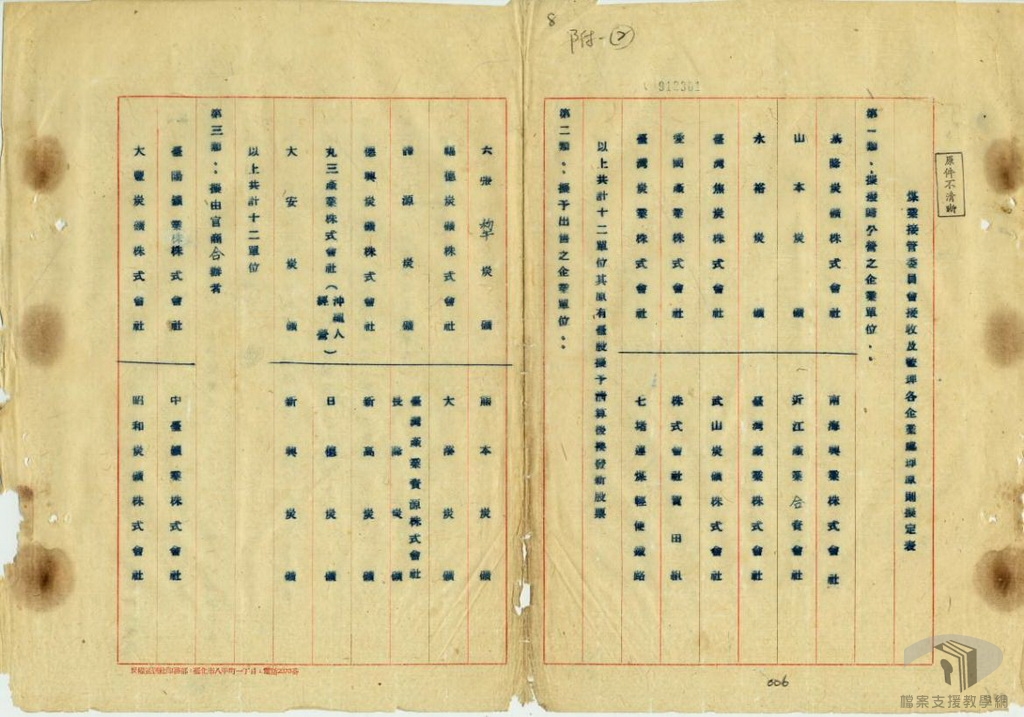 8
附-②
912301
原件不清晰
煤業接管委員會接收及監理各企業處理原則擬定表
第一類：擬撥歸公營之企業單位：
基隆炭礦株式會社
南海興業株式會社
山本炭礦
近江產業合資會社
永裕炭礦
臺灣產業株式會社
臺灣焦炭株式會社
武山炭礦株式會社
愛國產業株式會社
株式會社賀田組
臺灣炭業株式會社
七堵運煤輕便鐵路
以上共計十二單位其原有臺股擬予清算後換發新股票
第二類：擬予出售之企業單位：
六張犁炭礦
藤本炭礦
福德炭礦株式會社
大炭礦
源炭礦
臺灣產業資源株式會社
長炭礦
德興炭礦株式會社
新高炭礦
丸三產業株式會社（沖繩人經營）
日炭礦
大安炭礦
新興炭礦
以上共計十二單位
第三類：擬由官商合辦者
臺陽鑛業株式會社
中臺鑛業株式會社
大豐炭礦株式會社
昭和炭礦株式會社
006
檔案支援教學網